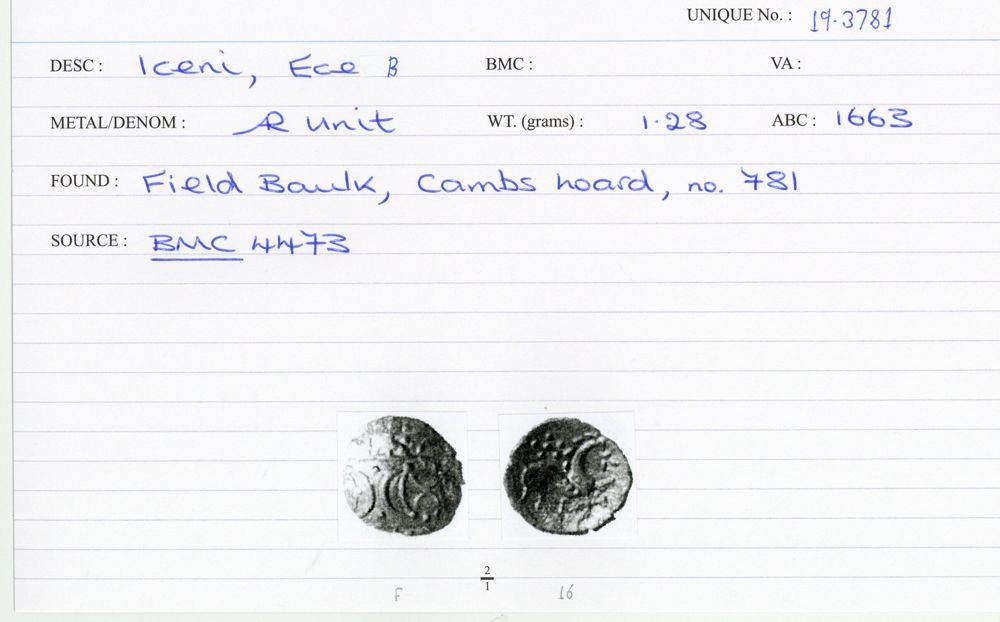 UNIQUE No. : 19.3781
DESC : Iceni, Ece B BMC : VA :
METAL/DENOM : AR Unit WT. (grams) : 1.28 ABC : 1663
FOUND : Field Baulk, Cambs hoard, no. 781
SOURCE : BMC 4473
2
1
F 16